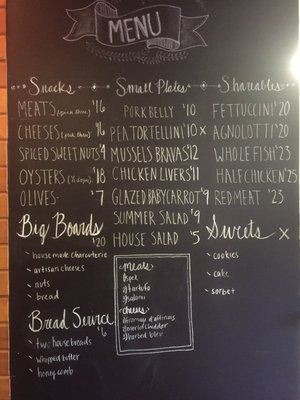 MENU
Snacks
MEATS (pick three) $16
CHEESES (pick three) $16
SPICED SWEET NUTS $4
OYSTERS (½ doz) $18
OLIVES - $7
Big Boards
$20
house made charcuterie
artisan cheeses
nuts
bread
Bread Service
$6
two house breads
whipped butter
honeycomb
Small Plates
PORK BELLY $10
PEA TORTELLINI $10 x
MUSSELS BRAVAS $12
CHICKEN LIVERS $11
GLAZED BABY CARROT $9
SUMMER SALAD $9
HOUSE SALAD $5
meats
1) spek
2) tartufo
3) salami
cheeses
1) fromage d'affinois
2) merlot cheddar
3) herbed blev
Shareables
FETTUCCINI $20
AGNOLOTTI $20
WHOLE FISH $23
HALF CHICKEN $25
RED MEAT $23
Sweets x
cookies
cake
sorbet